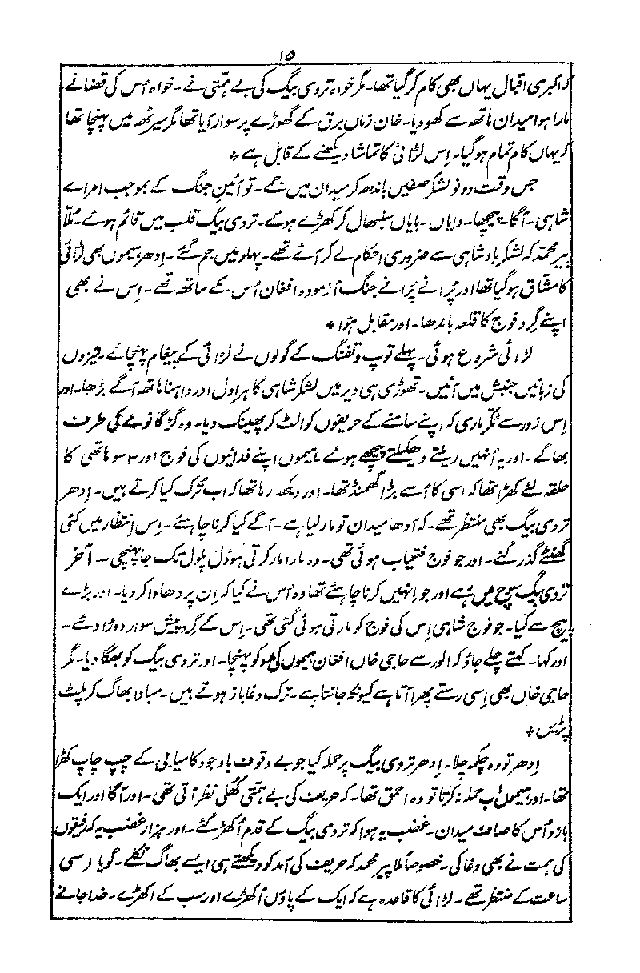 ۱۵
کہ اکبری اقبال یہاں بھی کام کر گیا تھا۔ مگر خواہ تردی بیگ کی بے ہمتی نے۔ خواہ اُس کی قضا نے
مارا ہوا میدان ہاتھ سے کھو دیا۔ خان زماں برق کے گھوڑے پر سوار آیا تھا مگر میرٹھ میں پہنچا تھا
کہ یہاں کام تمام ہو گیا۔ اِس لڑائی کا تماشا دیکھنے کے قابل ہے *
جس وقت دونو لشکر صفیں باندھ کر میدان میں جمے۔ تو آئین جنگ کے بموجب امراے
شاہی۔ آگا۔ پیچھا۔ دایاں۔ بایاں سنبھال کر کھڑے ہوئے۔ تردی بیگ قلب میں قائم ہوئے۔ ملّا
پیر محمد کہ لشکر بادشاہی سے ضروری احکام لے کر آئے تھے۔ پہلو میں جم گئے۔ اِدھر ہیموں بھی لڑائی
کا مشاق ہو گیا تھا اور پُرانے پُرانے جنگ آزمودہ افغان اُس کے ساتھ تھے۔ اِس نے بھی
اپنے گرد فوج کا قلعہ باندھا۔ اور مقابل ہوا *
لڑائی شروع ہوئی۔ پہلے توپ و تفنگ کے گولوں نے لڑائی کے پیغام پہنچائے۔ نیزوں
کی زبانیں جنبش میں آئیں۔ تھوڑی ہی دیر میں لشکر شاہی کا ہراول اور دہنا ہاتھ آگے بڑھا۔ اور
اِس زور سے ٹکر ماری کہ اپنے سامنے کے حریفوں کو الٹ کر پھینک دیا۔ وہ گڑگانوے کی طرف
بھاگے۔ اور یہ اُنہیں ریلتے دھکیلتے پیچھے ہوئے ہیموں اپنے فدائیوں کی فوج اور ۳ سو ہاتھی کا
حلقہ لئے کھڑا تھا کہ اسی کا اُسے بڑا گھمنڈ تھا۔ اور دیکھ رہا تھا کہ اب تُرک کیا کرتے ہیں۔ اِدھر
تردی بیگ بھی منتظر تھے۔ کہ آدھا میدان تو مار لیا ہے۔ آگے کیا کرنا چاہئے۔ اِس انتظار میں کئی
گھنٹے گذر گئے۔ اور جو فوج فتحیاب ہوئی تھی۔ وہ مارا مار کرتی ہوڈل پلول تک جا پہنچی۔ آخر
تردی بیگ سوچ میں رہے اور جو اِنہیں کرنا چاہئے تھا وہ اُس نے کیا کہ اِن پر دھاوا کر دیا۔ اور بڑے
پیچ سے کیا۔ جو فوج شاہی اِس کی فوج کو مارتی ہوئی گئی تھی۔ اِس کے گرد و پیش سوار دوڑا دئے۔
اور کہا۔ کہتے چلے جاؤ کہ الور سے حاجی خاں افغان ہیموں کی مدد کو پہنچا۔ اور تردی بیگ کو بھگا دیا۔ مگر
حاجی خاں بھی اِسی رستے پھرا آتا ہے کیونکہ جانتا ہے۔ تُرک دغا باز ہوتے ہیں۔ مبادا بھاگ کر پلٹ
پڑیں *
اِدھر تو وہ چکمہ چلا۔ اِدھر تردی بیگ پر حملہ کیا جو بے وقوف باوجود کامیابی کے چپ چاپ کھڑا
تھا۔ اور ہیموں اب حملہ نہ کرتا تو وہ احمق تھا۔ کہ حریف کی بے ہمتی کھلی نظر آتی تھی۔ اور آگا اور ایک
بازو اُس کا صاف میدان۔ غضب یہ ہوا کہ تردی بیگ کے قدم اُکھڑ گئے۔ اور ہزار غضب یہ کہ رفیقوں
کی ہمت نے بھی دغا کی۔ خصوصاً ملّا پیر محمد کہ حریف کی آمد کو دیکھتے ہی ایسے بھاگ نکلے۔ گویا اسی
ساعت کے منتظر تھے۔ لڑائی کا قاعدہ ہے کہ ایک کے پاؤں اُکھڑے اور سب کے اکھڑے۔ خدا جانے